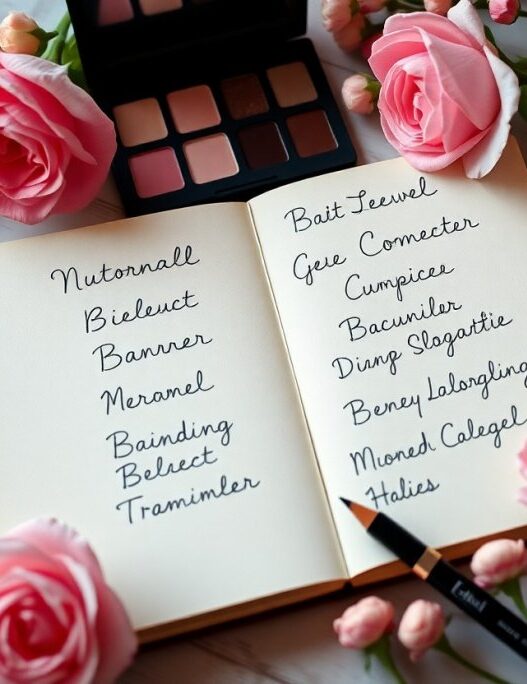 Nutornall
Bieleuct
Banvrer
Meramel
Bainding
Belsect
Tramimler
Bait Jeewel
Geue Comecter
Cumpicee
Bacuniler
Dinp Slogartie
Beney Lalorgling
Mioned Calegel
Halies